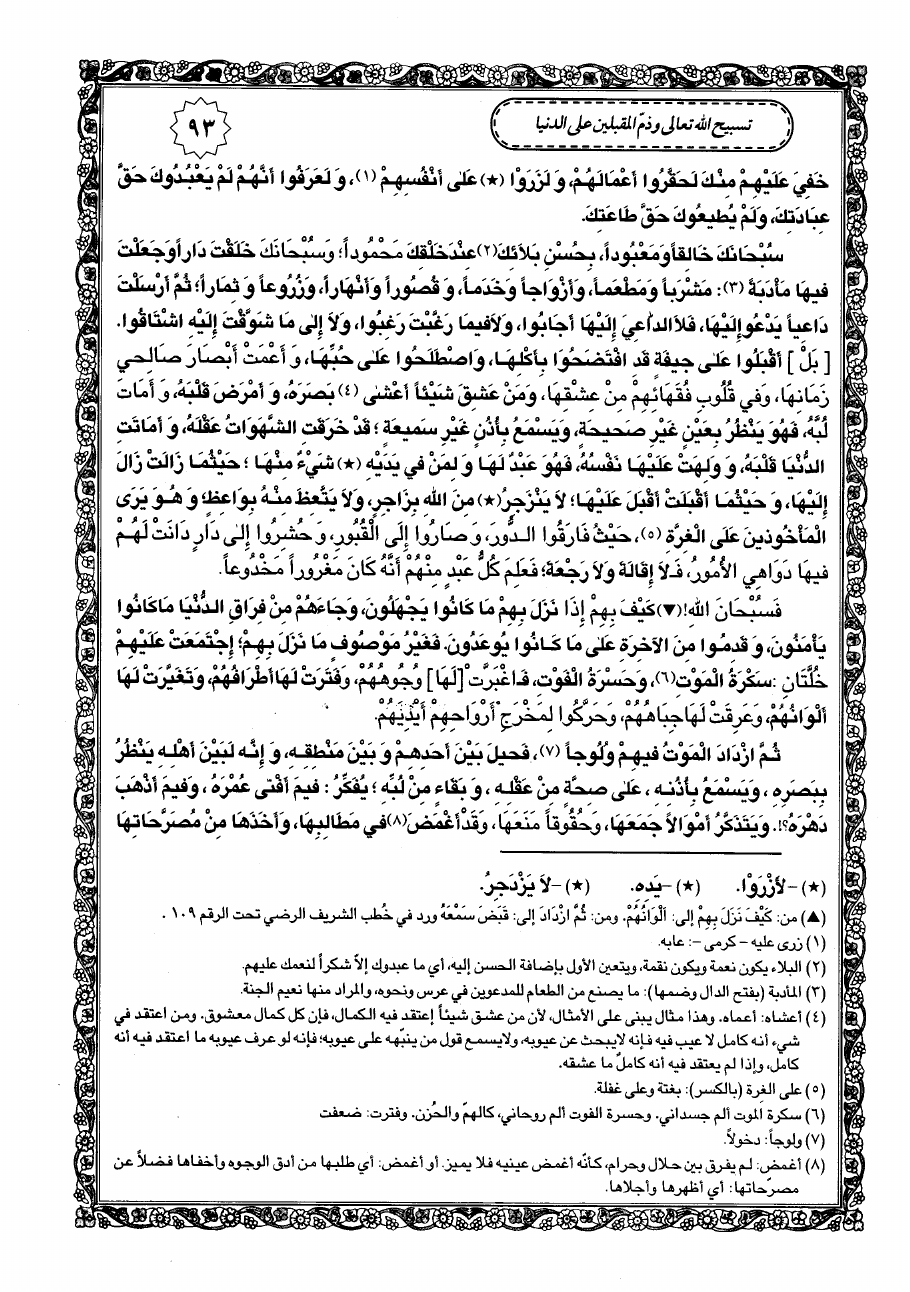 تسبيح الله تعالى وذمّ المقبلين على الدنيا
٩٣
خَفِيَ عَلَيْهِمْ مِنْكَ لَحَقَّرُوا أَعْمَالَهُمْ، وَ لَزَرَوْا (★) عَلى أَنْفُسِهِمْ (١)، وَ لَعَرَفُوا أَنَّهُمْ لَمْ يَعْبُدُوكَ حَقَّ
عِبَادَتِكَ، وَلَمْ يُطيعُوكَ حَقَّ طَاعَتِكَ.
سُبْحَانَكَ خَالِقاً وَمَعْبُوداً، بِحُسْنِ بَلَائِكَ(٢) عِنْدَ خَلْقِكَ مَحْمُوداً؛ وَسُبْحَانَكَ خَلَقْتَ دَاراً وَجَعَلْتَ
فيهَا مَأْدَبَةً (٣): مَشْرَباً وَمَطْعَماً، وَأَزْوَاجاً وَخَدَماً، وَ قُصُوراً وَأَنْهَاراً، وَزُرُوعاً وَ ثِمَاراً؛ ثُمَّ أَرْسَلْتَ
دَاعِياً يَدْعُو إِلَيْهَا، فَلَا الدَّاعِيَ إِلَيْهَا أَجَابُوا، وَلَا فيمَا رَغَّبْتَ رَغِبُوا، وَلَا إِلى مَا شَوَّقْتَ إِلَيْهِ اشْتَاقُوا.
[ بَلْ ] أَقْبَلُوا عَلى جيفَةٍ قَدِ افْتَضَحُوا بِأَكْلِهَا، وَاصْطَلَحُوا عَلى حُبِّهَا، وَ أَعْمَتْ أَبْصَارَ صَالِحي
زَمَانِهَا، وَفي قُلُوبِ فُقَهَائِهِمْ مِنْ عِشْقِهَا، وَمَنْ عَشِقَ شَيْئاً أَعْشى (٤) بَصَرَهُ، وَ أَمْرَضَ قَلْبَهُ، وَ أَمَاتَ
لُبَّهُ، فَهُوَ يَنْظُرُ بِعَيْنٍ غَيْرِ صَحيحَةٍ، وَيَسْمَعُ بِأُذُنٍ غَيْرِ سَميعَةٍ؛ قَدْ خَرَقَتِ الشَّهَوَاتُ عَقْلَهُ، وَ أَمَاتَتِ
الدُّنْيَا قَلْبَهُ، وَ وَلِهَتْ عَلَيْهَا نَفْسُهُ، فَهُوَ عَبْدٌ لَهَا وَ لِمَنْ في يَدَيْهِ (★) شَيْءٌ مِنْهَا؛ حَيْثُمَا زَالَتْ زَالَ
إِلَيْهَا، وَ حَيْثُمَا أَقْبَلَتْ أَقْبَلَ عَلَيْهَا؛ لَا يَنْزَجِرُ (★) مِنَ اللهِ بِزَاجِرٍ، وَلَا يَتَّعِظُ مِنْهُ بِوَاعِظٍ؛ وَ هُوَ يَرَى
الْمَأْخُوذينَ عَلَى الْغِرَّةِ (٥)، حَيْثُ فَارَقُوا الدُّورَ، وَ صَارُوا إِلَى الْقُبُورِ، وَ حُشِرُوا إِلى دَارٍ دَانَتْ لَهُمْ
فيهَا دَوَاهِي الْأُمُورِ، فَلَا إِقَالَةَ وَلَا رَجْعَةَ؛ فَعَلِمَ كُلُّ عَبْدٍ مِنْهُمْ أَنَّهُ كَانَ مَغْرُوراً مَخْدُوعاً.
فَسُبْحَانَ اللهِ! (▼) كَيْفَ بِهِمْ إِذَا نَزَلَ بِهِمْ مَا كَانُوا يَجْهَلُونَ، وَجَاءَهُمْ مِنْ فِرَاقِ الدُّنْيَا مَا كَانُوا
يَأْمَنُونَ، وَ قَدِمُوا مِنَ الْآخِرَةِ عَلى مَا كَانُوا يُوعَدُونَ. فَغَيْرُ مَوْصُوفٍ مَا نَزَلَ بِهِمْ؛ إِجْتَمَعَتْ عَلَيْهِمْ
خُلَّتَانِ: سَكْرَةُ الْمَوْتِ(٦)، وَحَسْرَةُ الْفَوْتِ، فَاغْبَرَّتْ [لَهَا] وُجُوهُهُمْ، وَفَتَرَتْ لَهَا أَطْرَافُهُمْ، وَتَغَيَّرَتْ لَهَا
أَلْوَانُهُمْ، وَعَرِقَتْ لَهَا جِبَاهُهُمْ، وَحَرَّكُوا لِمَخْرَجِ أَرْوَاحِهِمْ أَيْدِيَهُمْ.
ثُمَّ ازْدَادَ الْمَوْتُ فيهِمْ وُلُوجاً (٧)، فَحيلَ بَيْنَ أَحَدِهِمْ وَ بَيْنَ مَنْطِقِهِ، وَ إِنَّهُ لَبَيْنَ أَهْلِهِ يَنْظُرُ
بِبَصَرِهِ، وَيَسْمَعُ بِأُذُنِهِ، عَلى صِحَّةٍ مِنْ عَقْلِهِ، وَ بَقَاءٍ مِنْ لُبِّهِ؛ يُفَكِّرُ: فيمَ أَفْنى عُمْرَهُ، وَفيمَ أَذْهَبَ
دَهْرَهُ؟!. وَيَتَذَكَّرُ أَمْوَالاً جَمَعَهَا، وَحُقُوقاً مَنَعَهَا، وَقَدْ أَغْمَضَ(٨) في مَطَالِبِهَا، وَأَخَذَهَا مِنْ مُصَرَّحَاتِهَا
(★) –لَأَزْرَوْا. (★) –يَدِهِ. (★) –لَا يَزْدَجِرُ.
(▲) من: كَيْفَ نَزَلَ بِهِمْ إلى: أَلْوَانُهُمْ. ومن: ثُمَّ ازْدَادَ إلى: قَبَضَ سَمْعَهُ ورد في خُطب الشريف الرضي تحت الرقم ١٠٩ .
(١) زرى عليه – كرمى –: عابه.
(٢) البلاء يكون نعمة ويكون نقمة، ويتعين الأول بإضافة الحسن إليه، أي ما عبدوك إلاّ شكراً لنعمك عليهم.
(٣) المأدبة (بفتح الدال وضمها): ما يصنع من الطعام للمدعوين في عرس ونحوه، والمراد منها نعيم الجنة.
(٤) أعشاه: أعماه. وهذا مثال يبنى على الأمثال، لأن من عشق شيئاً إعتقد فيه الكمال، فإن كل كمال معشوق. ومن اعتقد في
شيء أنه كامل لا عيب فيه فإنه لايبحث عن عيوبه، ولايسمع قول من ينبّهه على عيوبه؛ فإنه لو عرف عيوبه ما اعتقد فيه أنه
كامل، وإذا لم يعتقد فيه أنه كاملٌ ما عشقه.
(٥) على الغرة (بالكسر): بغتة وعلى غفلة.
(٦) سكرة الموت ألم جسداني. وحسرة الفوت ألم روحاني، كالهمّ والحُزن. وفترت: ضعفت
(٧) ولوجاً: دخولاً.
(٨) أغمض: لم يفرق بين حلال وحرام، كأنّه أغمض عينيه فلا يميز. أو أغمض: أي طلبها من أدق الوجوه وأخفاها فضلاً عن
مصرّحاتها: أي أظهرها وأجلاها.